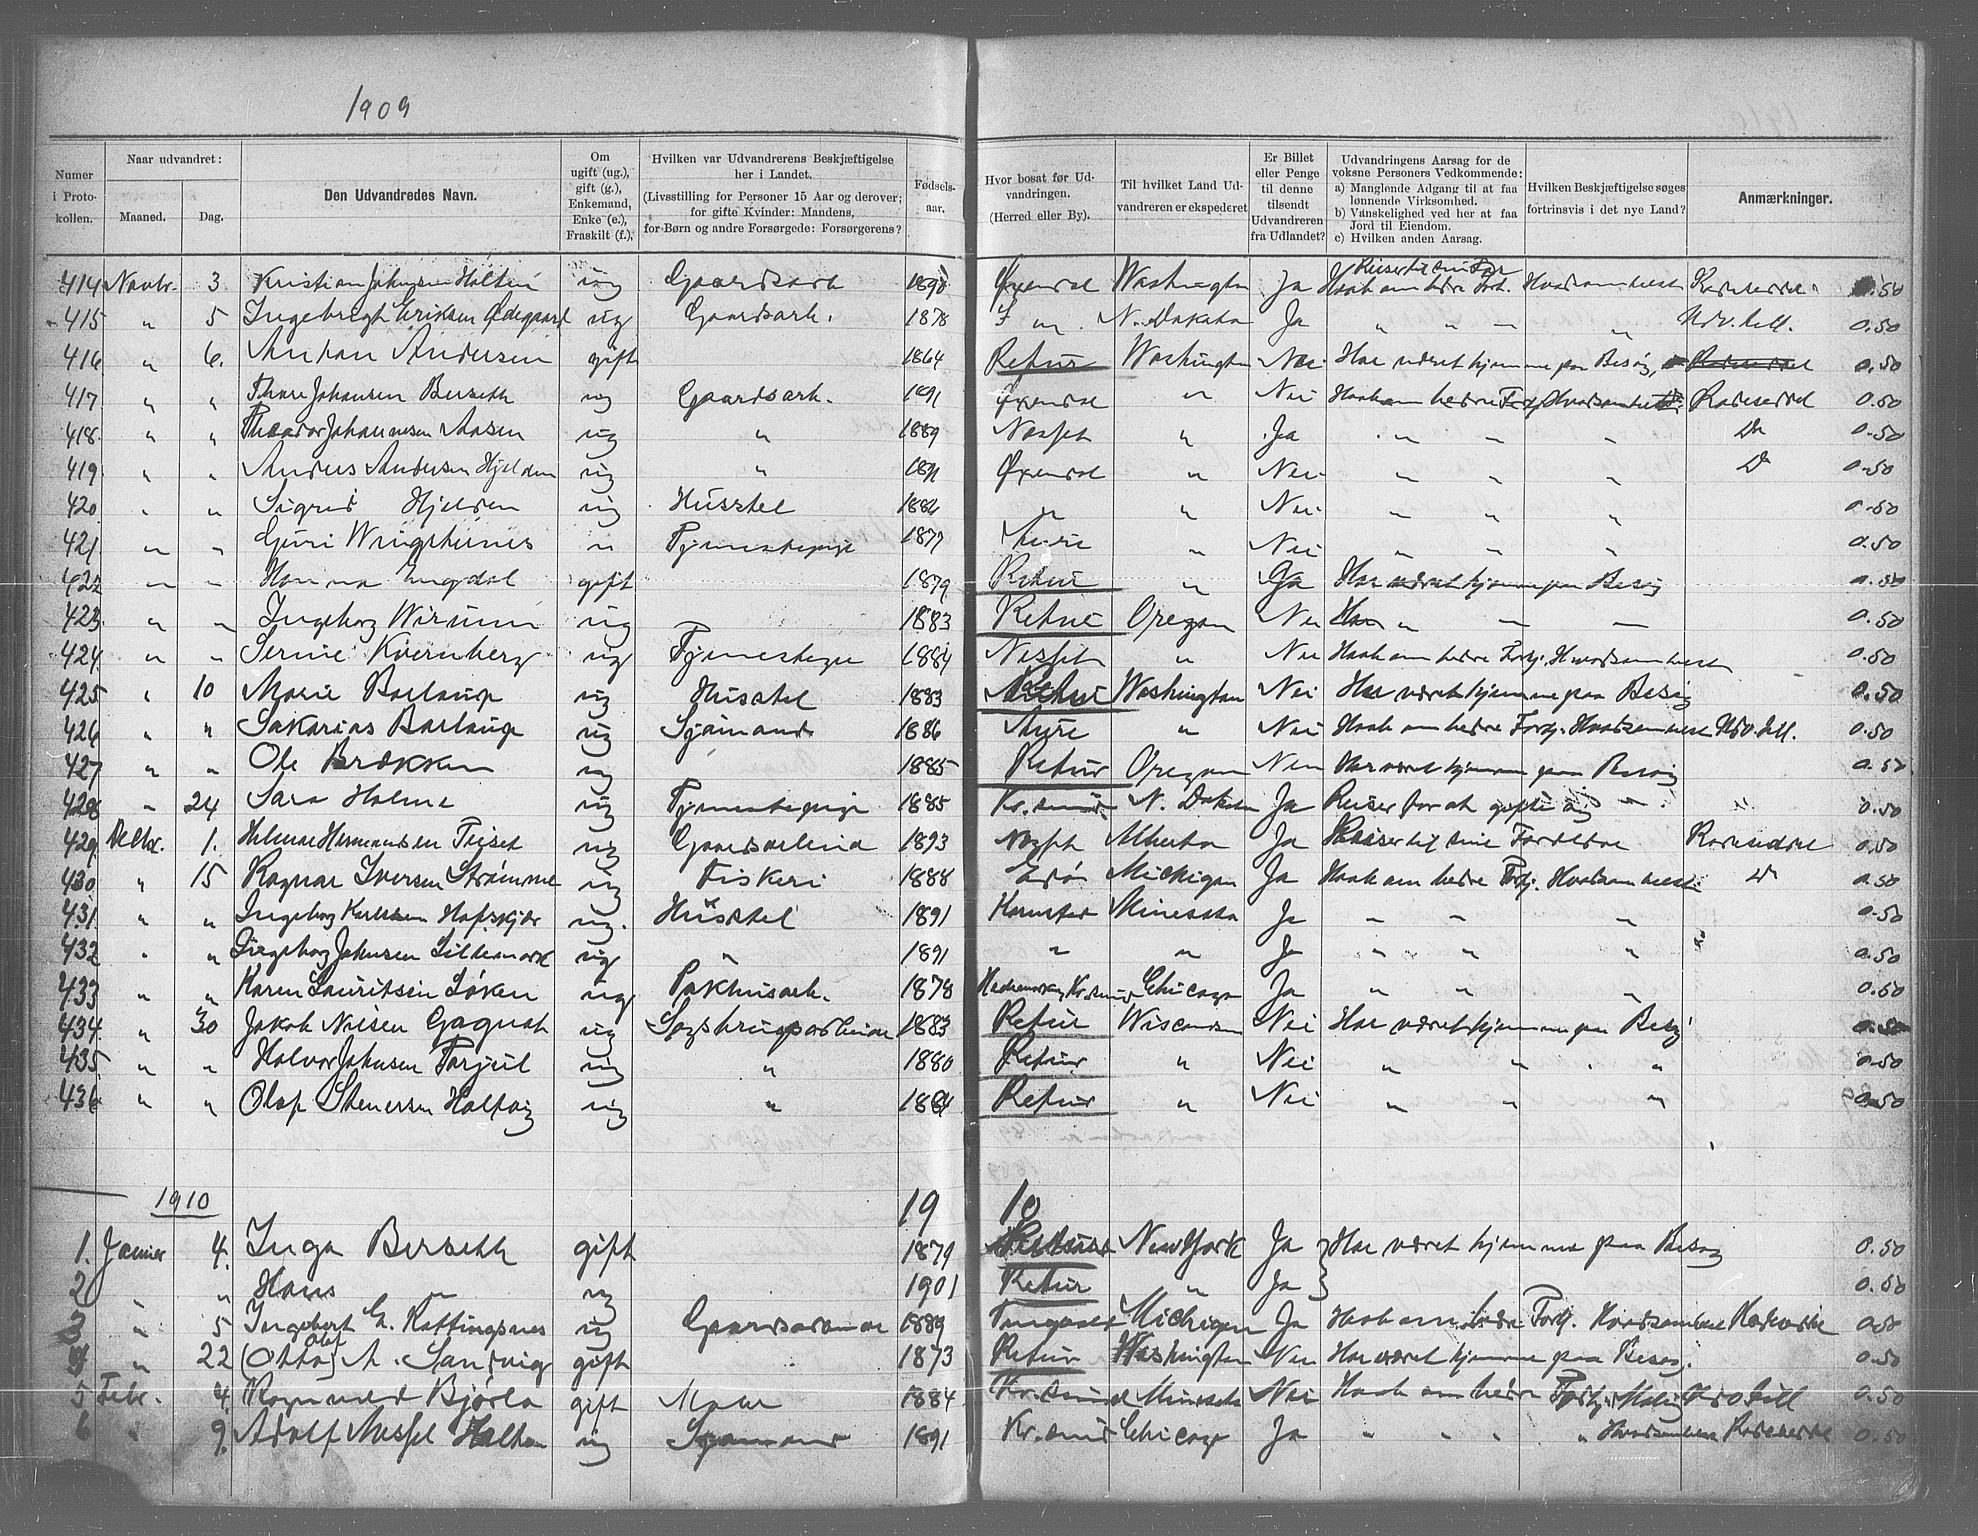 1909
Numer i Proto-kollen. Naar udvandret: Maaned. Dag. Den Udvandredes Navn. Om ugift (ug.), gift (g.), Enkemand, Enke (e.), Fraskilt (f.), Hvilken var Udvandrerens Beskjæftigelse her i Landet. (Livsstilling for Personer 15 Aar og derover; for gifte Kvinder: Mandens, for Børn og andre Forsørgede: Forsørgerens? Fødsels-aar. Hvor bosat før Ud-vandringen. (Herred eller By). Til hvilket Land Ud-vandreren er ekspederet Er Billet eller Penge til denne tilsendt Udvandreren fra Udlandet? Udvandringens Aarsag for de voksne Personers Vedkommende: a) Manglende Adgang til at faa lønnende Virksomhed. b) Vanskelighed ved her at faa Jord til Eiendom. c) Hvilken anden Aarsag. Hvilken Beskjæftigelse søges fortrinsvis i det nye Land? Anmærkninger.
414 Novbr. 3 Kristian Johnsen Holten ug Gaardsarb 1890 Øxendal Washington Ja Haab om bedre Fort. 0.50
415 " 5 Ingebrigt Eriksen Ødegaard ug Gaardsarb. 1878 N. Dakota Ja " " " Udv. till. 0.50
416 " 6. Anton Andersen gift 1864 Retur Washington Nei Har været hjemme paa Besøg, 0.50
417 " " Thore Johansen Berseth ug Gaardsarb. 1891 Øxendal " Nei Haab om bedre Fortj. 0.50
418. " " Theodor Johannesen Aasen ug " 1889 Nesset " Ja " " " Do 0.50
419. " " Anders Andersen Hjelden ug " 1891 Øxendal " Nei " " " Do 0.50
420 " " Sigrid Hjelden ug Husstel 1886 " " Nei " " " 0.50
421. " " Guri Wingsternes " Tjenestepige 1877 Aure " Nei " " " 0.50
422 " " Hanna Engdal gift 1879 Retur " Ja Har været hjemme paa Besøg 0.50
423. " " Ingeborg Wirum ug 1883 Retur Oregon Nei " " " 0.50
424 " " Serine Kvernberg ug Tjenestepige 1884 Nesset " Nei Haab om bedre Fortj. 0.50
425 " 10 Marie Barlaup ug Husstel 1883 Retur Washington Nei Har været hjemme paa Besøg 0.50
426 " " Sakarias Barlaup ug Sjømand 1886 Aure " Nei Haab om bedre Fortj. Udv. till. 0.50
427 " " Ole Brækken ug 1885 Retur Oregon Nei Har været hjemme paa Besøg 0.50
428 " 24 Sara Holme ug Tjenestepige 1885 Kr.sund N. Dakota Ja Reiser for at gifte sig " " 0.50
429. Decbr. 1. Helmer Hermandsen ug Gaardsarbeide 1893 Nesset Alberta Ja Reiser til sine Forældre 0.50
430 " 15 Ragnar Iversen Strømme ug Fiskeri 1888 Edøy Michigan Ja Haab om bedre Fortj. Do 0.50
431. " " Ingeborg Karlsen ug. Husstel 1891 Kornstad Minesota Ja " " " 0.50
432 " " Ingeborg Johnsen ug " 1891 " " Ja " " " 0.50
433 " " Karen Lauritsen Løken ug Pakhusarb. 1878 Kr.sund Chicago Ja " " " 0.50
434. " 30 Jakob Nilsen Gagnat ug Sagbrugsarbeide 1883 Retur Wisconsin Nei Har været hjemme paa Besøg 0.50
435 " " Halvor Johnsen Torjul ug " 1880 Retur " Nei " " " 0.50
436 " " Olaf Stenersen ug " 1884 Retur " Nei " " " 0.50
1910 19 10
1. Januar 4. Inga Berseth gift 1879 New York Ja Har været hjemme paa Besøg 0.50
2 " " Hans " ug 1901 Retur " Ja 0.50
3 " 5 Ingebert G. Kattingsnes ug Gaardsarbeide 1889 Tingvold Michigan Ja Haab om bedre Fortj. 0.50
4 " 22 (Otto) Olaf A. Sandvig gift 1873 Retur Washington Nei Har været hjemme paa Besøg. 0.50
5 Febr. 4. Ragnvald Bjørlo gift Maler 1884 Kr.sund Minesota Nei Haab om bedre Fortj. Udv. till 0.50
6 " 9. Adolf Holten ug Sjømand 1891 Kr.sund Chicago Ja " " " " 0.50